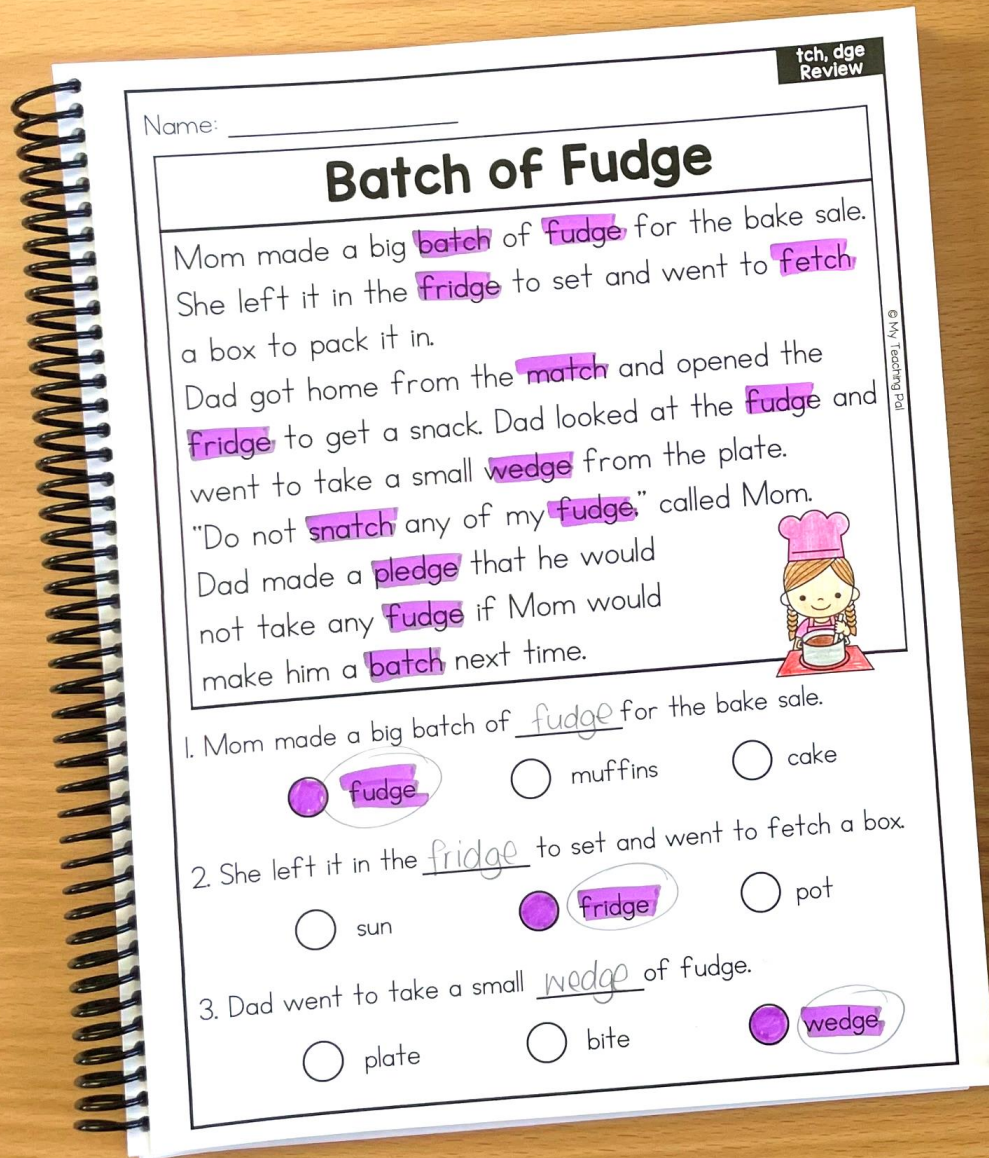 tch, dge
Review
Name:
Batch of Fudge
Mom made a big batch of fudge for the bake sale.
She left it in the fridge to set and went to fetch
a box to pack it in.
Dad got home from the match and opened the
fridge to get a snack. Dad looked at the fudge and
went to take a small wedge from the plate.
"Do not snatch any of my fudge," called Mom.
Dad made a pledge that he would
not take any fudge if Mom would
make him a batch next time.
© My Teaching Pal
1. Mom made a big batch of fudge for the bake sale.
fudge muffins cake
2. She left it in the fridge to set and went to fetch a box.
sun fridge pot
3. Dad went to take a small wedge of fudge.
plate bite wedge